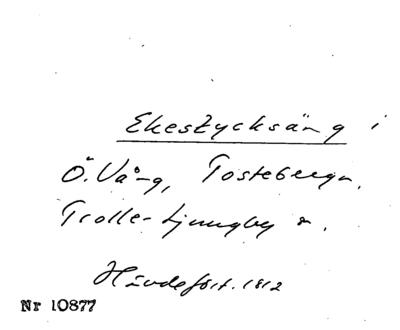 Ekestycksäng i
Ö. Vång, Tosteberga,
Trolle-Ljungby s.
Hävdefört. 1812
Nr 10877